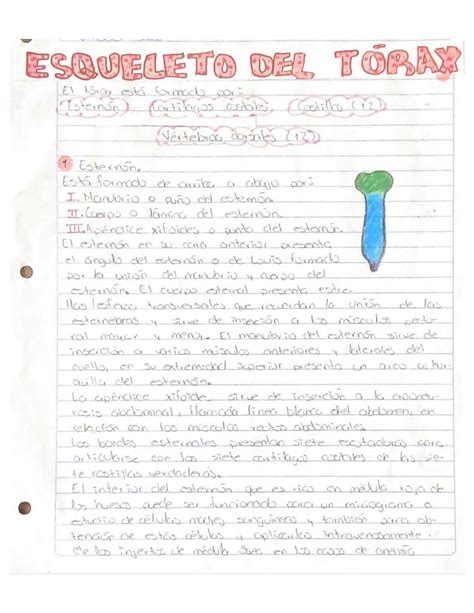 ESQUELETO DEL TÓRAX
El tórax está formado por:
Esternón Cartílagos costales Costillas (12)
Vértebras dorsales (12)
1 Esternón.
Está formado de arriba a abajo por:
I. Manubrio o puño del esternón
II. Cuerpo o lámina del esternón
III. Apéndice xifoides o punta del esternón.
El esternón en su cara anterior presenta
el ángulo del esternón o de Louis formado
por la unión del manubrio y cuerpo del
esternón. El cuerpo esternal presenta
transversales que recuerdan la unión de las
esternebras y sirve de inserción a los músculos pectoral
mayor y menor. El manubrio del esternón sirve de
inserción a varios músculos anteriores y laterales del
cuello, en su extremidad superior presenta un arco u horquilla
del esternón.
La apéndice xifoide, sirve de inserción a la aponeurosis
abdominal, llamada línea blanca del abdomen, en
relación con los músculos rectos abdominales.
Los bordes esternales presentan siete escotaduras para
articularse con los siete cartílagos costales de las siete
costillas verdaderas.
El interior del esternón que es rico en médula roja de
los huesos puede ser funcionado para un o
estudio de células madres sanguíneas y también para obtención
de estas células y aplicarlas intravenosamente
de los injertos de médula ósea en los casos de anemia